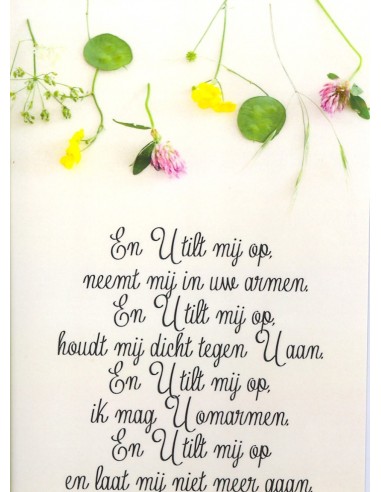 En U tilt mij op,
neemt mij in uw armen.
En U tilt mij op,
houdt mij dicht tegen U aan.
En U tilt mij op,
ik mag U omarmen.
En U tilt mij op
en laat mij niet meer gaan.